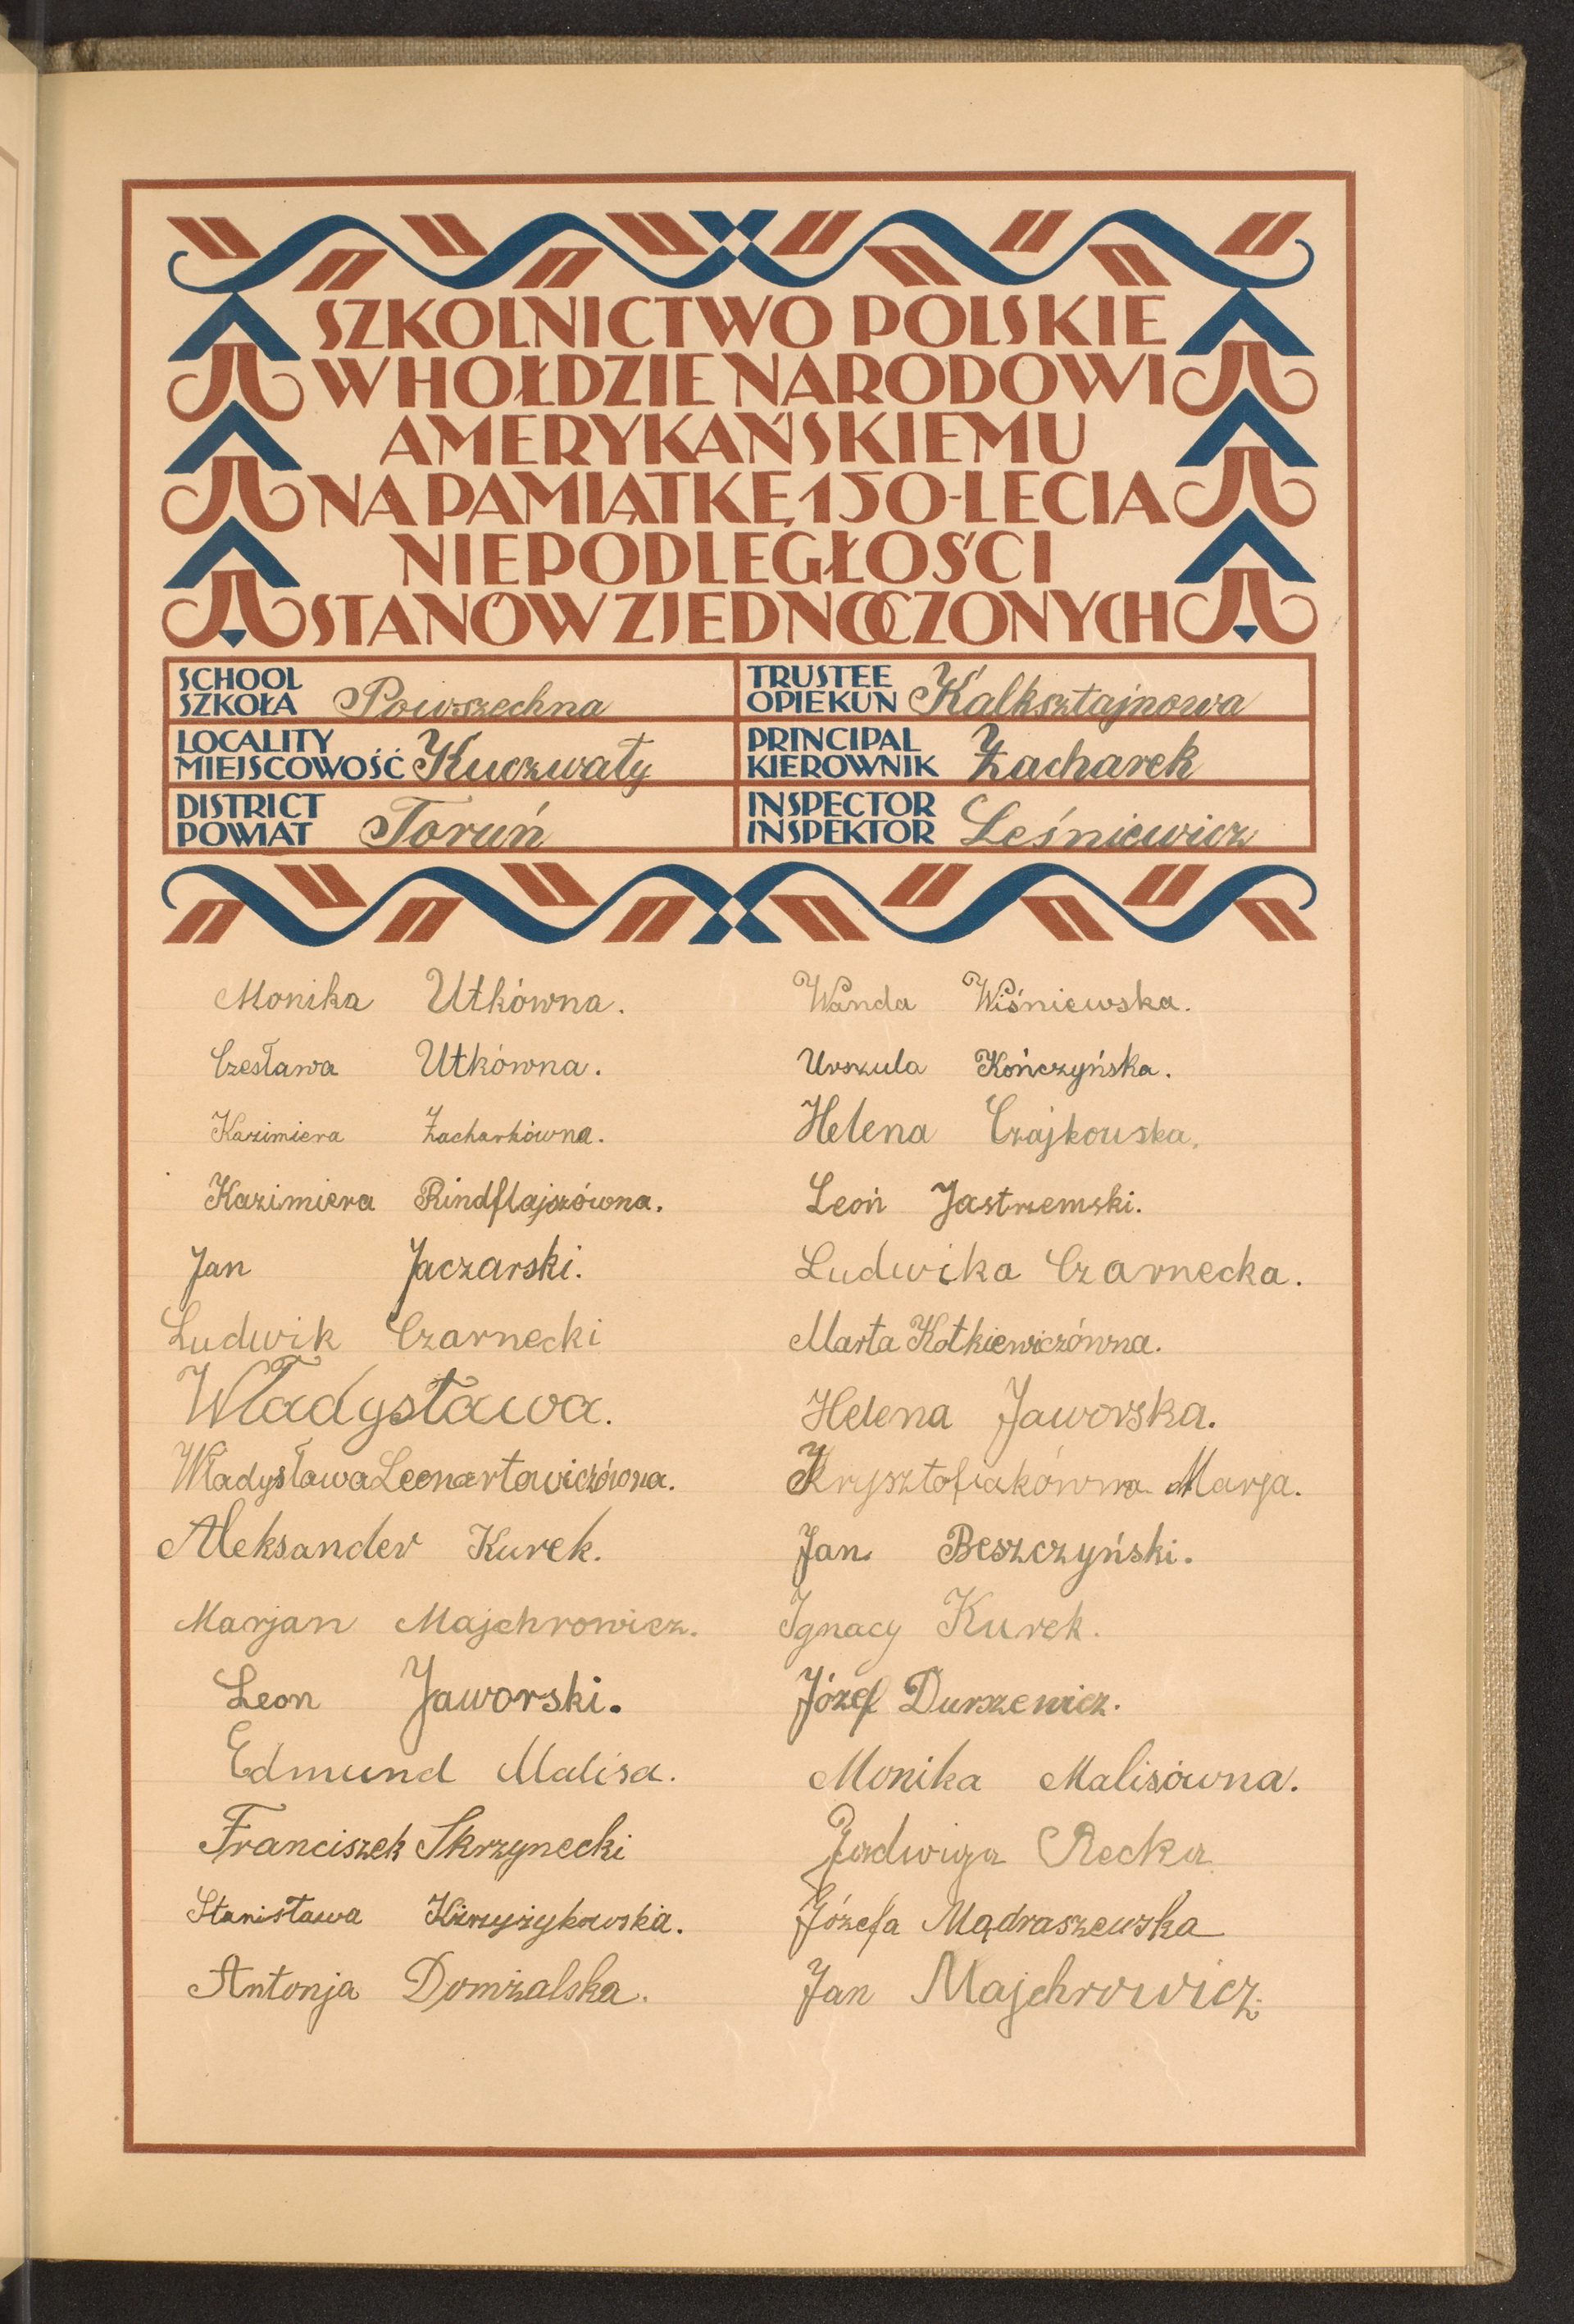 SZKOLNICTWO POLSKIE
W HOŁDZIE NARODOWI
AMERYKAŃSKIEMU
NA PAMIĄTKĘ 150-LECIA
NIEPODLEGŁOŚCI
STANÓW ZJEDNOCZONYCH
SCHOOL
SZKOŁA Powszechna
TRUSTEE
OPIEKUN Kalksztajnowa
LOCALITY
MIEJSCOWOŚĆ Kuczwały
PRINCIPAL
KIEROWNIK Zacharek
DISTRICT
POWIAT Toruń
INSPECTOR
INSPEKTOR Leśniewicz
Monika Utkówna.
Czesława Utkówna.
Kazimiera Zacharkówna.
Kazimiera Rindflajszówna.
Jan Jaczarski.
Ludwik Czarnecki
Władysława.
Władysława Leonartowiczówna.
Aleksander Kurek.
Marjan Majchrowicz.
Leon Jaworski.
Edmund Malisa.
Franciszek Skrzynecki
Stanisława Krzyżykowska.
Antonja Domżalska.
Wanda Wiśniewska.
Urszula Kończyńska.
Helena Czajkowska.
Leon Jastrzemski.
Ludwika Czarnecka.
Marta Kotkiewiczówna.
Helena Jaworska.
Krysztofiakówna Marja.
Jan Beszczyński.
Ignacy Kurek.
Józef Durszewicz.
Monika Malisówna.
Jadwiga Recka
Józefa Mądraszewska
Jan Majchrowicz.